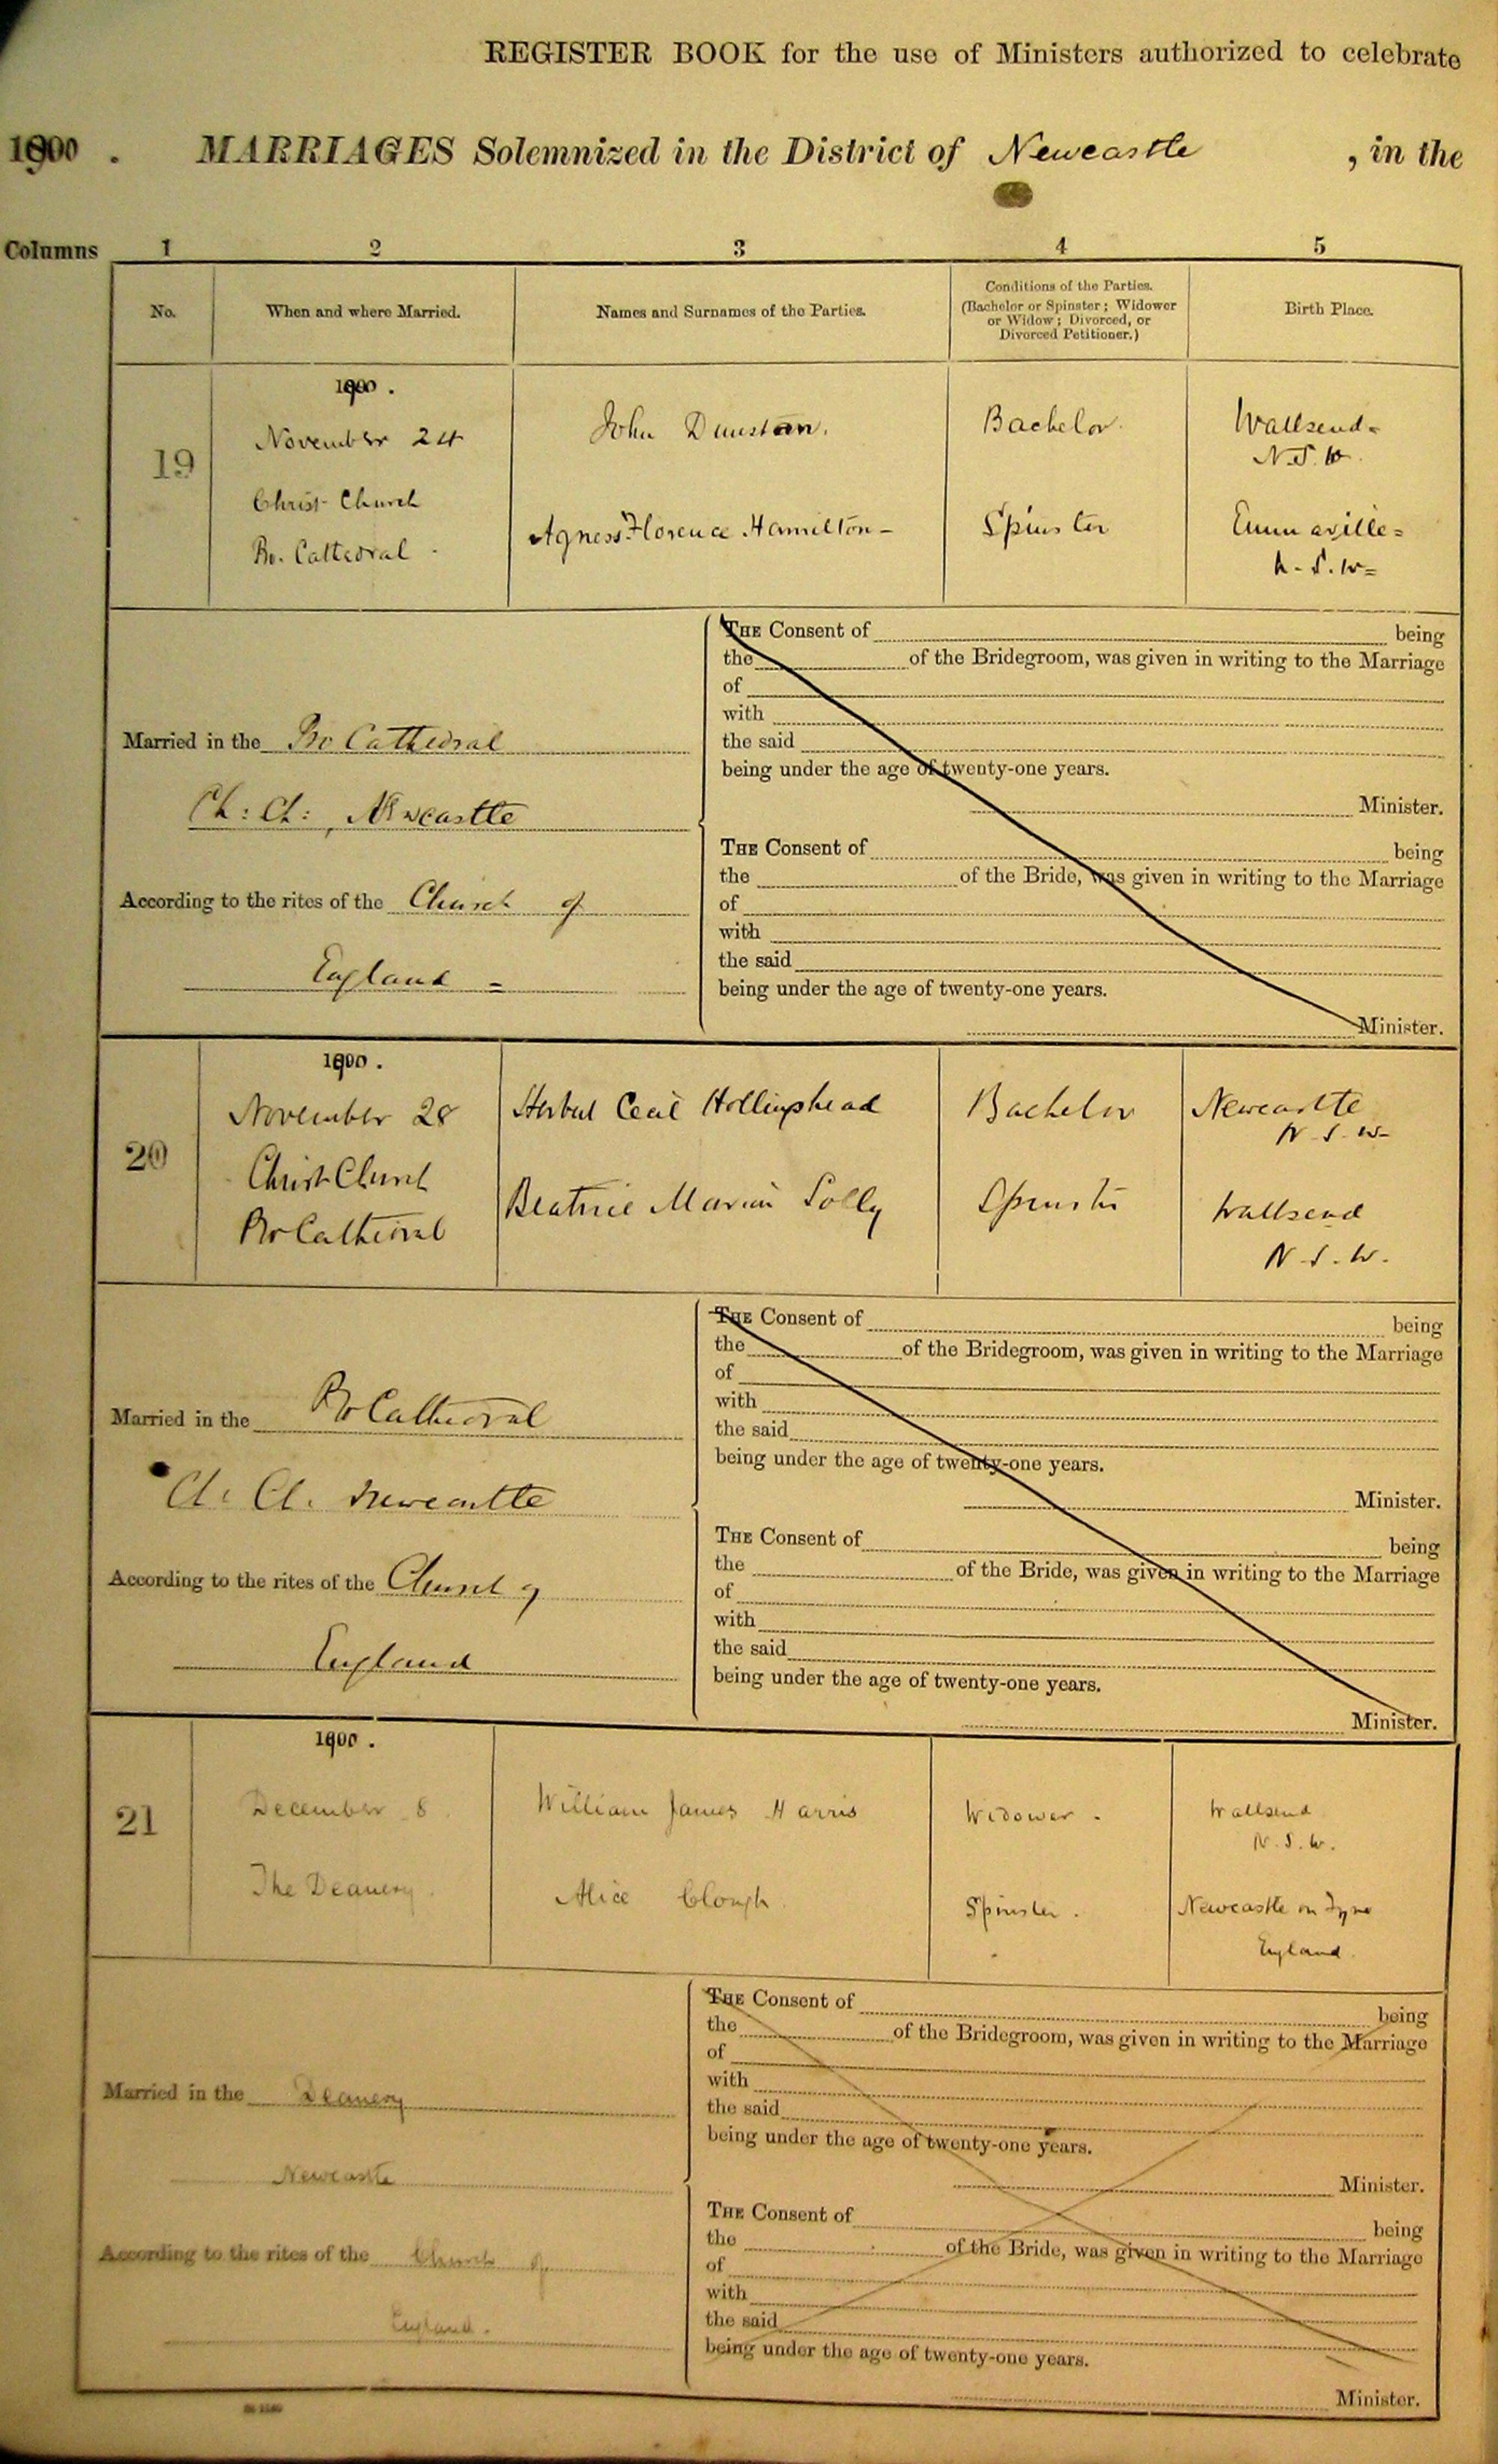 REGISTER BOOK for the use of Ministers authorized to celebrate
1900 . MARRIAGES Solemnized in the District of Newcastle , in the
Columns 1 2 3 4 5
No. When and where Married. Names and Surnames of the Parties. Conditions of the Parties. (Bachelor or Spinster; Widower or Widow; Divorced, or Divorced Petitioner.) Birth Place.
1900 .
19 November 24 John Dunstan. Bachelor. Wallsend
N.S.W.
Christ Church Agness Florence Hamilton - Spinster Emmaville
Pro. Cathedral - N.S.W
THE Consent of being
the of the Bridegroom, was given in writing to the Marriage
of
with
Married in the Pro Cathedral the said
being under the age of twenty-one years.
Ch: Ch: , Newcastle Minister.
THE Consent of being
the of the Bride, was given in writing to the Marriage
According to the rites of the Church of of
with
the said
England = being under the age of twenty-one years.
Minister.
1900 .
20 November 28 Herbert Cecil Hollingshead Bachelor Newcastle
N.S.W-
Christ Church Beatrice Marian Solly Spinster Wallsend
Pro Cathedral N.S.W.
THE Consent of being
the of the Bridegroom, was given in writing to the Marriage
of
with
Married in the Pro Cathedral the said
being under the age of twenty-one years.
Ch. Ch. Newcastle Minister.
THE Consent of being
the of the Bride, was given in writing to the Marriage
According to the rites of the Church of of
with
the said
England being under the age of twenty-one years.
Minister.
1900 .
21 December 8. William James Harris Widower - Wallsend
N.S.W.
The Deanery. Alice Clough. Spinster. Newcastle on Tyne
England.
THE Consent of being
the of the Bridegroom, was given in writing to the Marriage
of
with
Married in the Deanery the said
being under the age of twenty-one years.
Newcastle Minister.
THE Consent of being
the of the Bride, was given in writing to the Marriage
According to the rites of the Church of of
with
England. the said
being under the age of twenty-one years.
Minister.